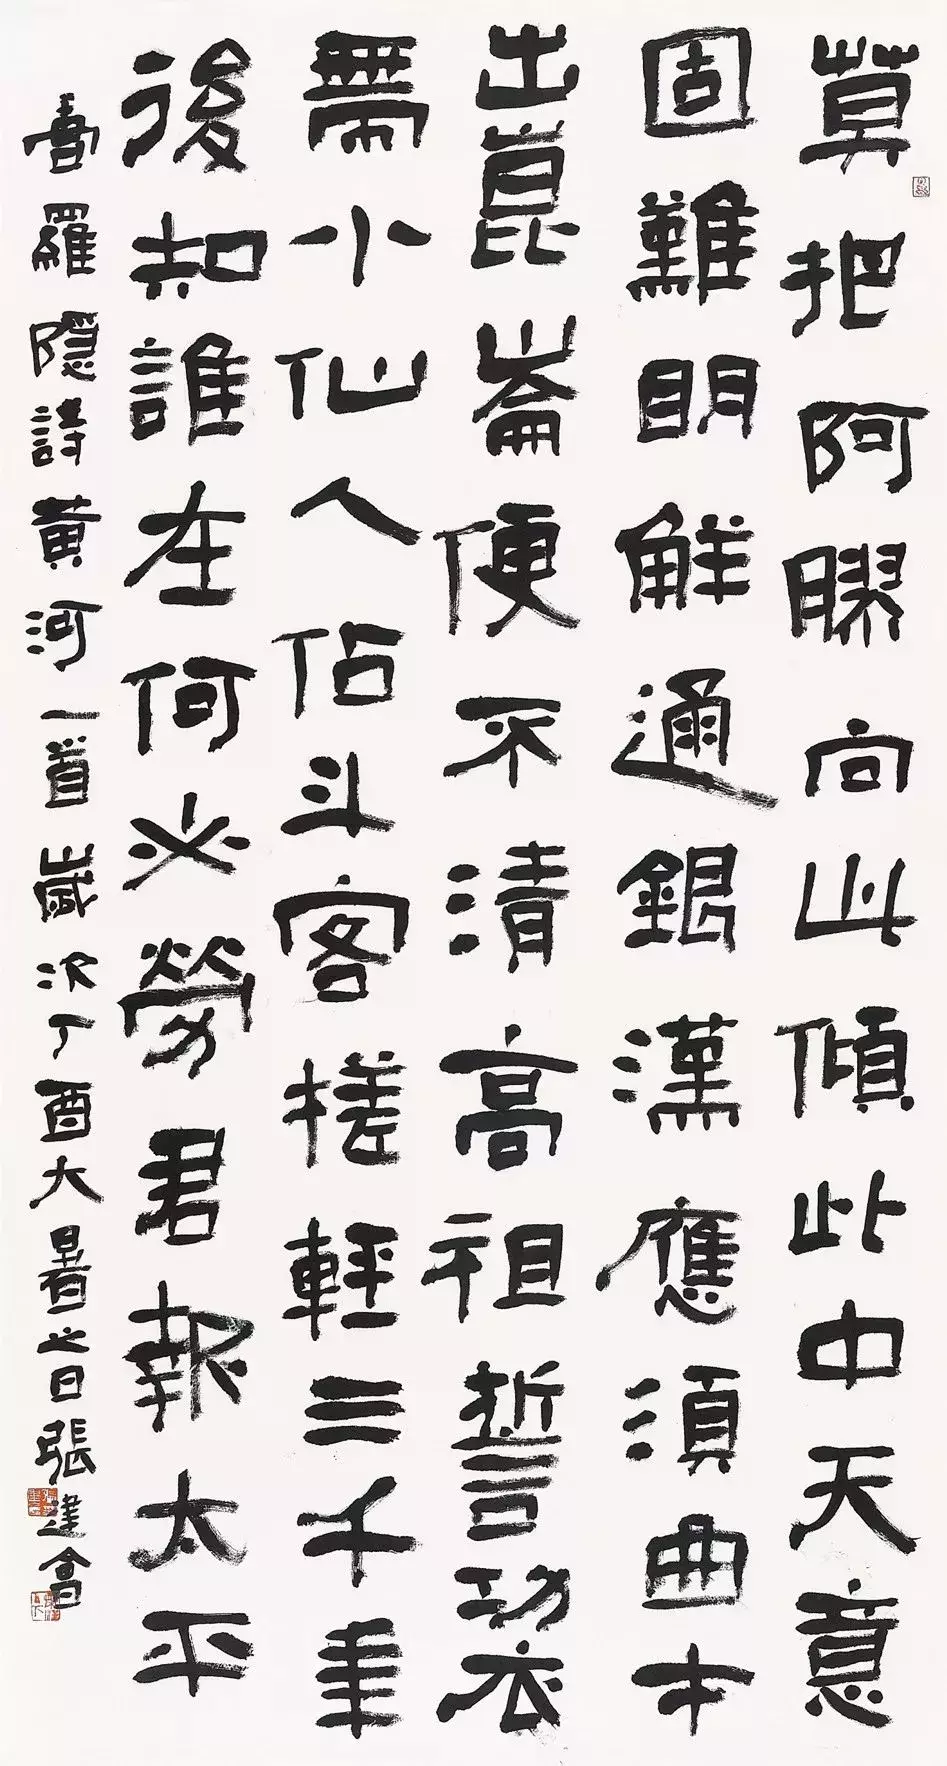 莫把阿膠向山傾此中天意
固難明解通銀漢應須曲才
出崑崙便不清高祖誓功衣
帶小仙人佔斗客槎輕三千年
後知誰在何必勞君報太平
書羅隱詩黃河一首歲次丁酉大暑之日張建會